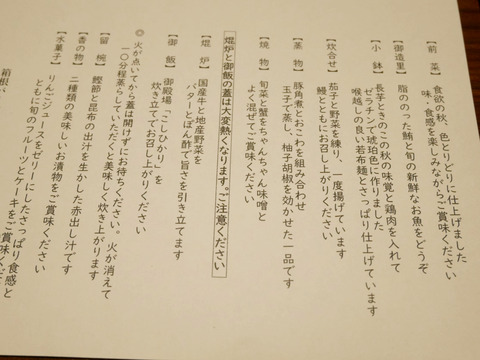 【前菜】 食欲の秋、色とりどりに仕上げました
味・食感を楽しみながらご賞味ください
【御造里】 脂ののった鮪と旬の新鮮なお魚をどうぞ
【小鉢】 長芋ときのこの秋の味覚と鶏肉を入れて
ゼラチンで琥珀色に作りました
喉越しの良い若布麺とさっぱり仕上げています
【炊合せ】 茄子と野菜を練り、一度揚げています
鰻とともにお召し上がりください
【蒸物】 豚角煮とおこわを組み合わせ
玉子で蒸し、柚子胡椒を効かせた一品です
【焼物】 旬菜と蟹をちゃんちゃん味噌と
よく混ぜてご賞味ください
焜炉と御飯の蓋は大変熱くなります。ご注意ください
【焜炉】 国産牛と地産野菜を
バターとぽん酢で旨さを引き立てます
【御飯】 御殿場「こしひかり」を
炊き立てでお召し上がりください
◎火が点いてから蓋は開けずにお待ちください。火が消えて
一〇分程蒸らしていただくと美味しく炊き上がります
【留椀】 鰹節と昆布の出汁を生かした赤出し汁です
【香の物】 二種類の美味しいお漬物をご賞味ください
【水菓子】 りんごジュースをゼリーにしたさっぱり食感と
ともに旬のフルーツとケーキをご賞味くだ
箱根